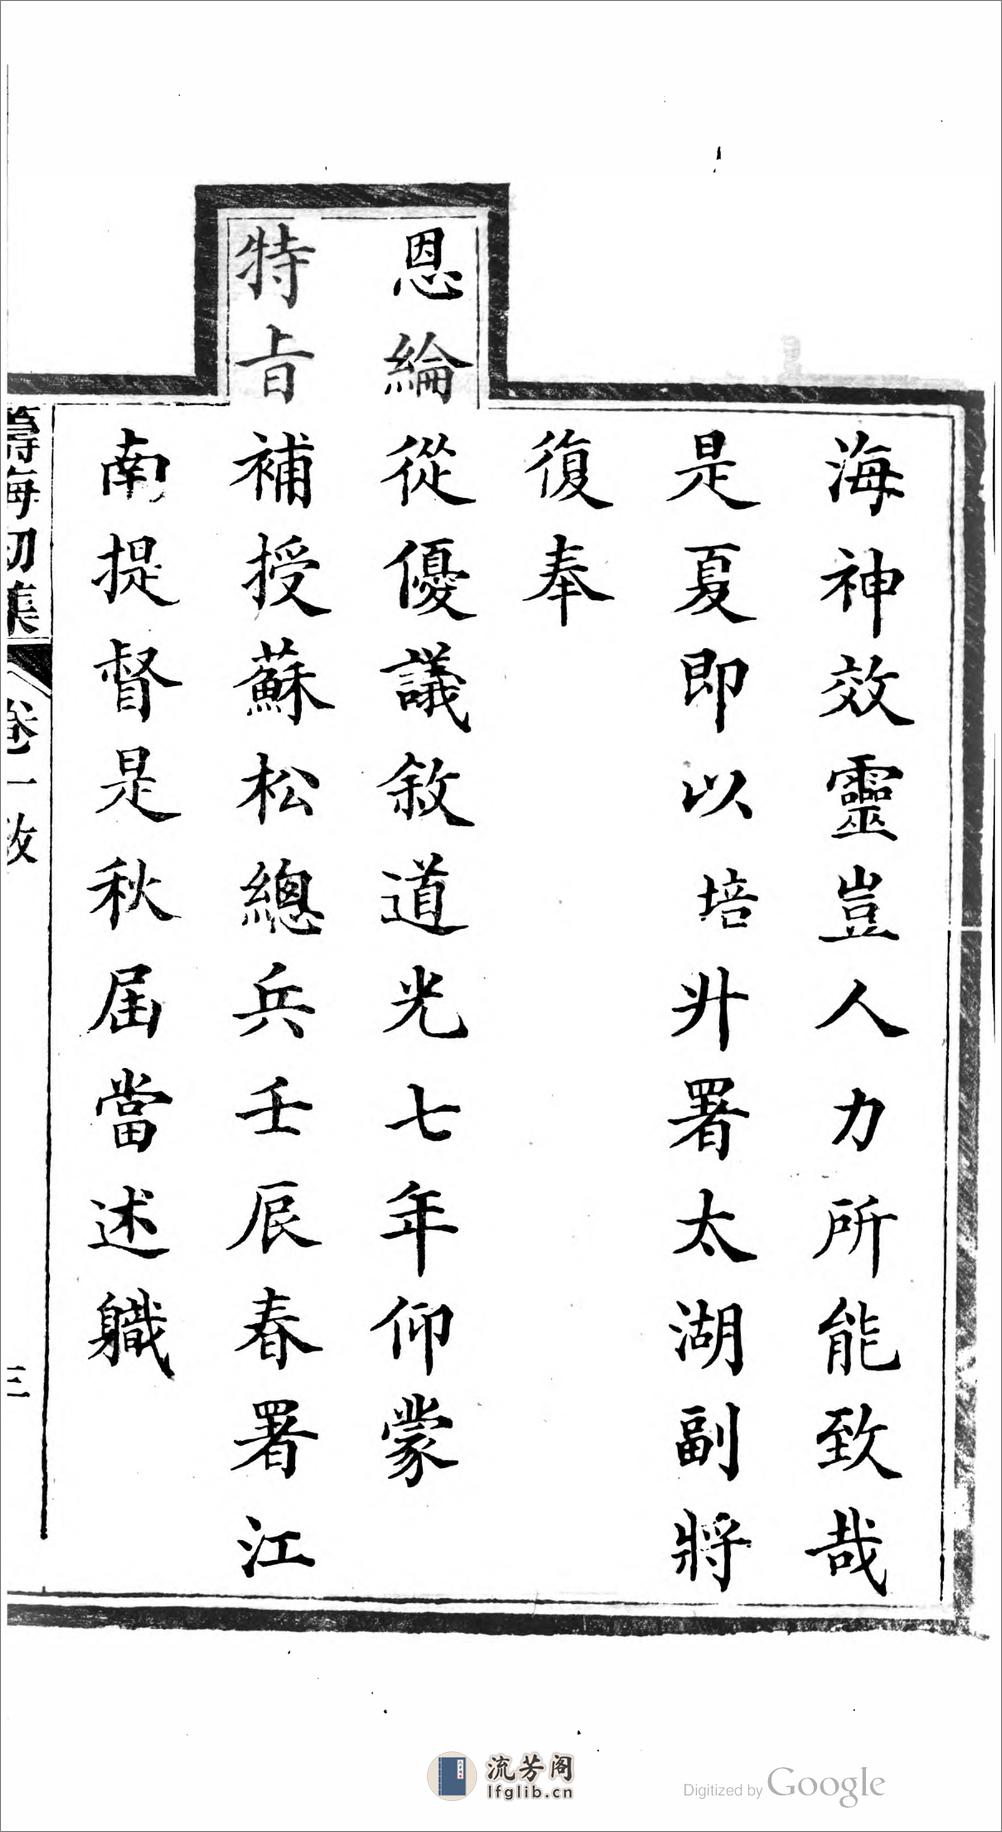 海神效靈豈人力所能致哉
是夏即以培升署太湖副將
復奉
恩綸從優議敘道光七年仰蒙
特旨補授蘇松總兵壬辰春署江
南提督是秋屆當述職
籌海初集 卷一 敘 三
流芳阁
lfglib.cn
Digitized by Google